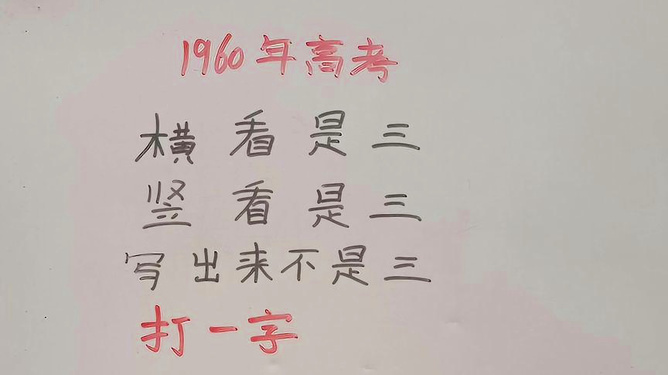 1960年高考
横看是三
竖看是三
写出来不是三
打一字